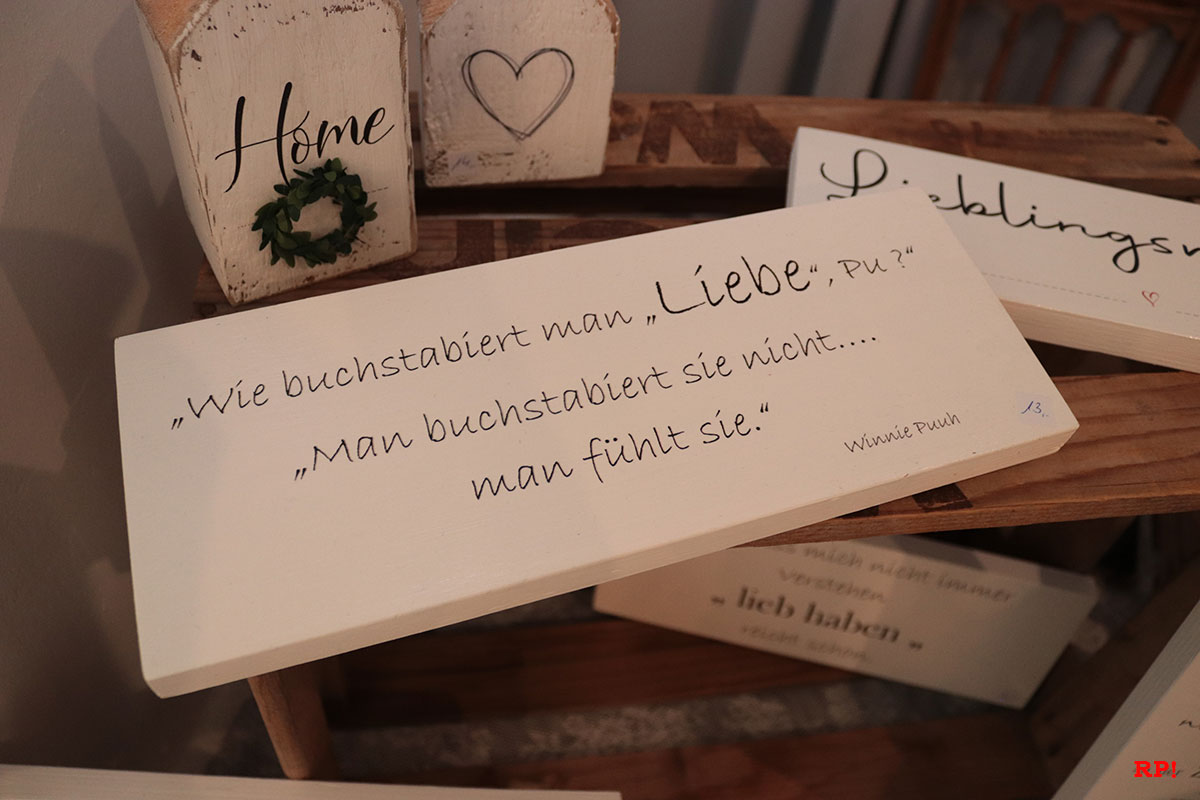 Home
„Wie buchstabiert man „Liebe“, Pu?“
„Man buchstabiert sie nicht....
man fühlt sie.“
Winnie Puuh
13,
mich nicht immer
verstehen
„ lieb haben „
reicht schon.
RP!